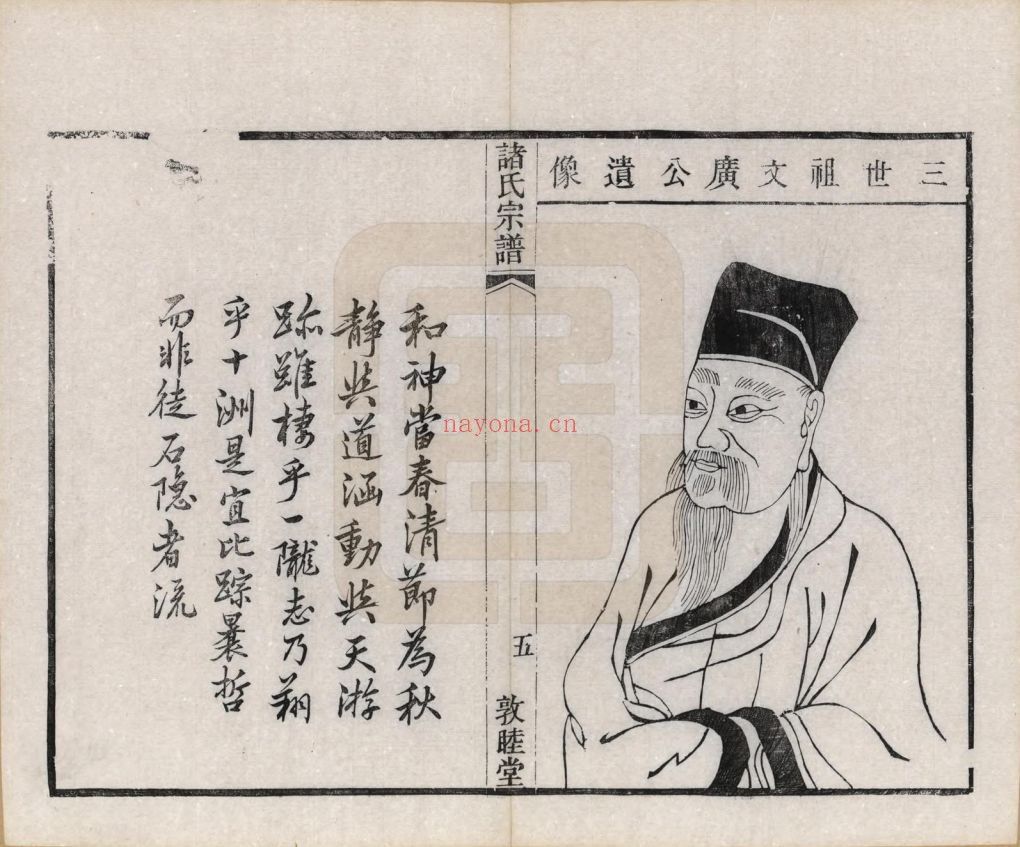 三世祖文廣公遺像
諸氏宗譜
五
敦睦堂
和神當春清節為秋
靜與道涵動與天游
跡雖棲乎一隴志乃翔
乎十洲是宜比踪曩哲
而非徒石隱者流
nayona.cn